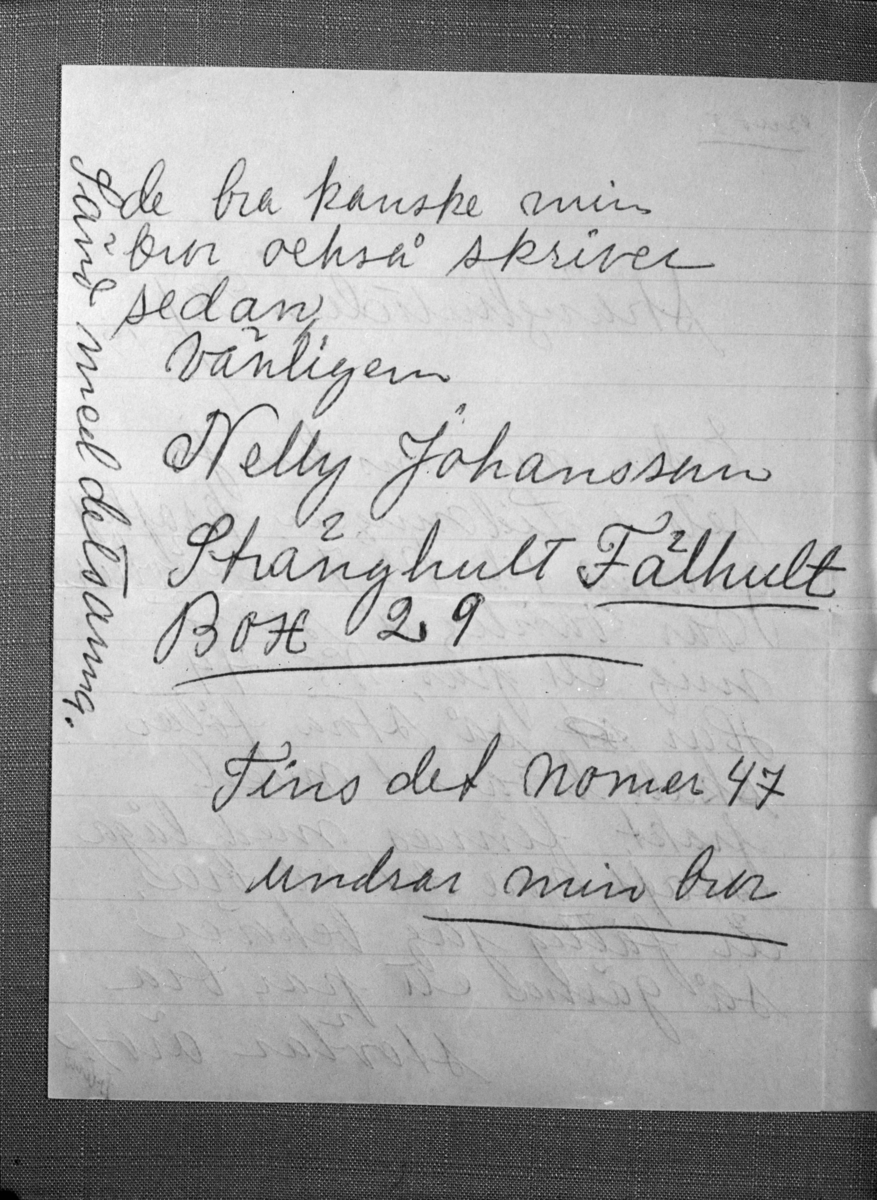 de bra kanske min
bror också skriver
sedan
Vänligen
Nelly Johansson
Stränghult Fälhult
Box 29
Fins det nomer 47
undrar min bror
Sänd med detsamma.